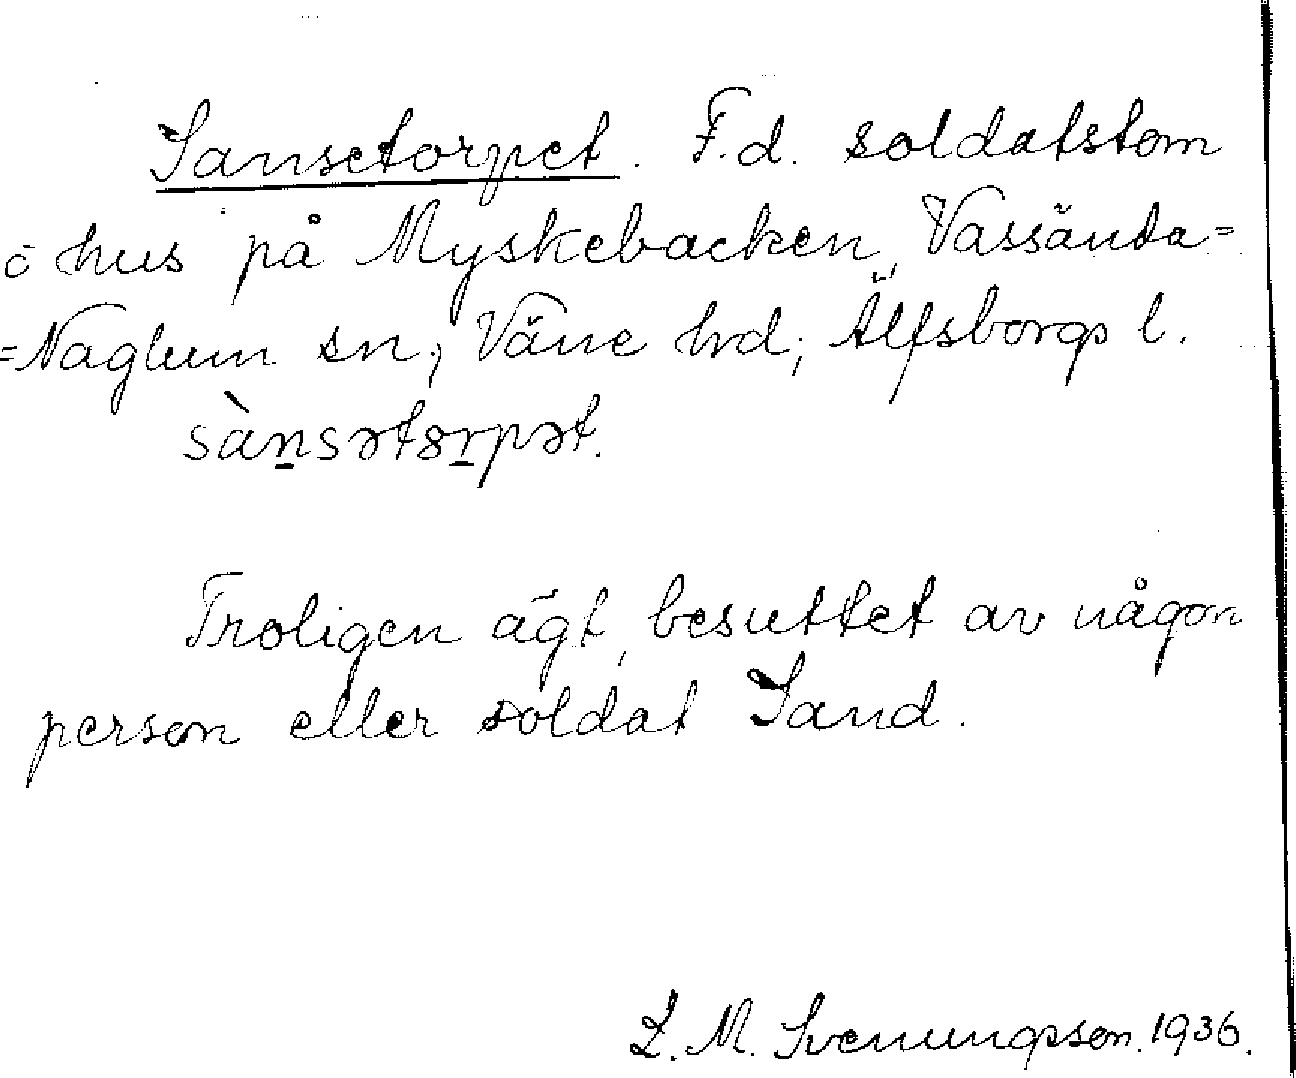 Sansetorpet. F.d. soldatstom
ō hus på Myskebacken, Vassända=
=Naglum sn, Väne hd, Älfsborgs l.
sàn̲sətər̲pət.
Troligen ägt, besuttet av någon
person eller soldat Sand.
L. M. Svenungsson. 1936.